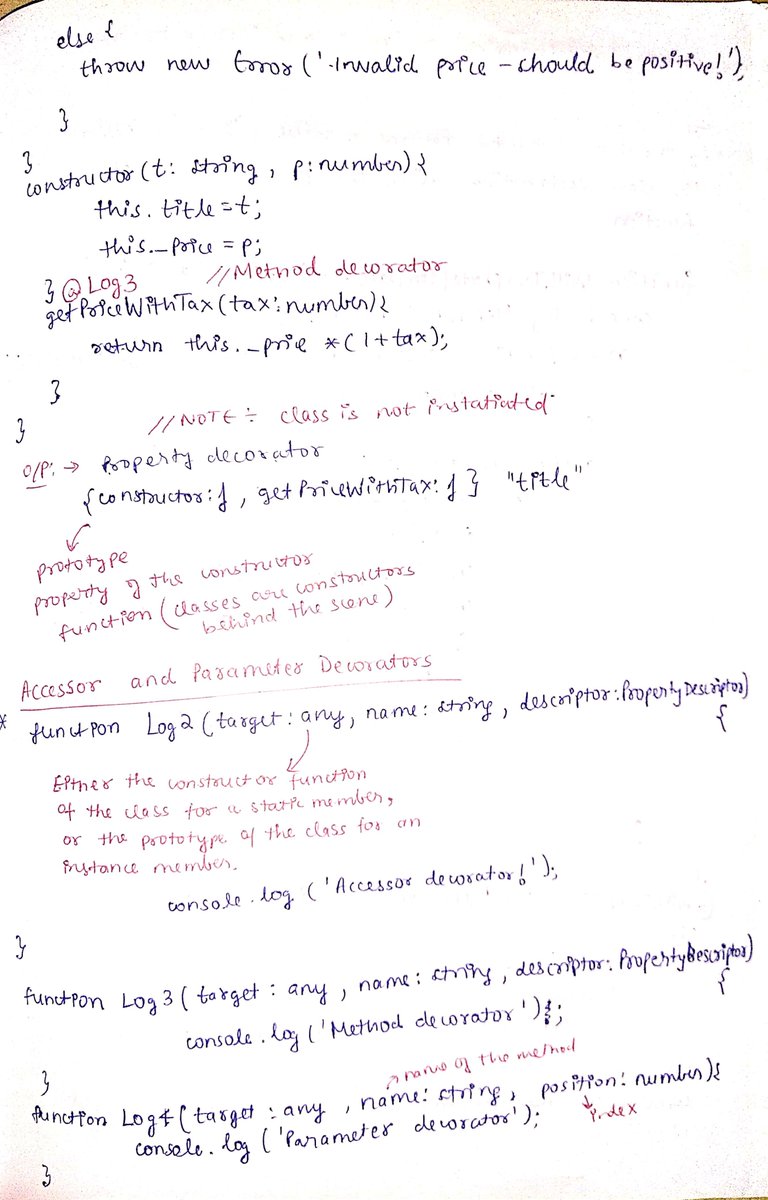 else {
throw new Error('Invalid price - should be positive!');
}
}
constructor(t: string, p: number) {
this.title = t;
this._price = p;
} @Log3 //Method decorator
getPriceWithTax(tax: number) {
return this._price * (1 + tax);
}
} //NOTE :- class is not instatiated
O/P: → Property decorator
{constructor: f, getPriceWithTax: f } "title"
prototype
property of the constructor
function (classes are constructors
behind the scene)
Accessor and Parameter Decorators
* function Log2 (target: any, name: string, descriptor: PropertyDescriptor)
{
Either the constructor function
of the class for a static member,
or the prototype of the class for an
instance member.
console.log ('Accessor decorator!');
}
function Log3 (target: any, name: string, descriptor: PropertyDescriptor)
{
console.log ('Method decorator');
}
name of the method
function Log4 (target: any, name: string, position: number) {
index
console.log ('Parameter decorator');
}